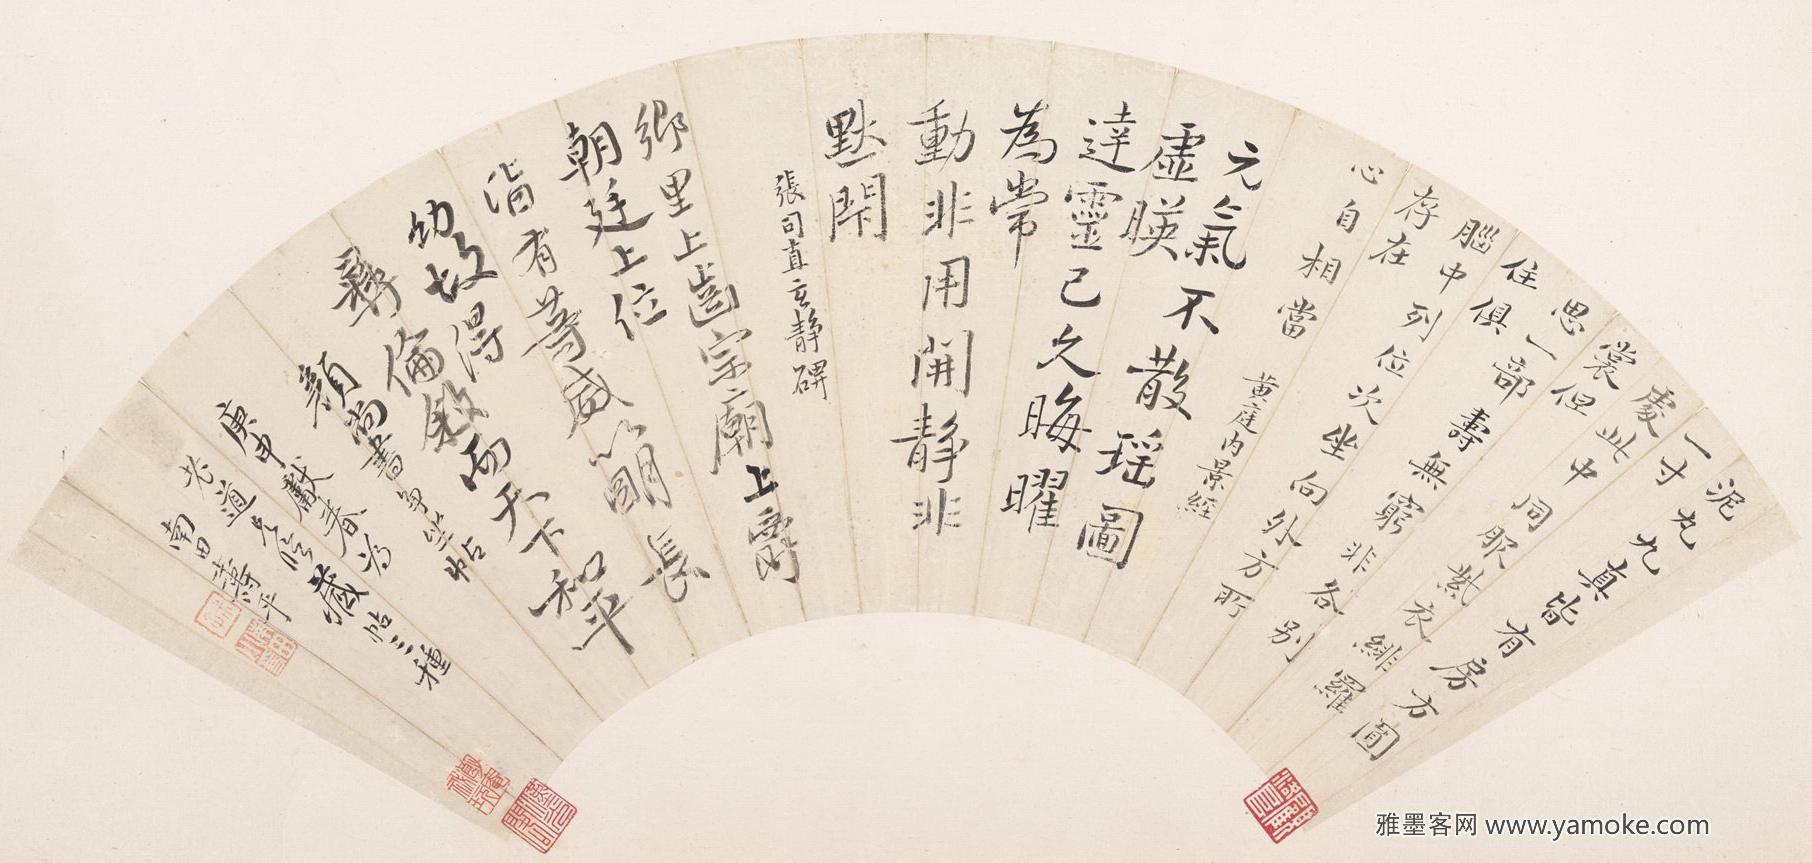 泥丸九真皆有房方圓
一寸
處此中同服紫衣緋羅
裳但
思一部壽無窮非各別
住俱
腦中列位次坐向外方所
存在
心自相當
黄庭内景經
元氣不散瑶圖
虛暎
達靈已久晦曜
為常
動非用開静非
默閇
張司直玄静碑
鄉里上齒宗廟上爵
朝廷上位
皆有等威以明長
幼故得
彝倫敘而天下和平
顔尚書争坐帖
庚申獻春為
老道兄臨藏帖三種
南田壽平
雅墨客网 www.yamoke.com